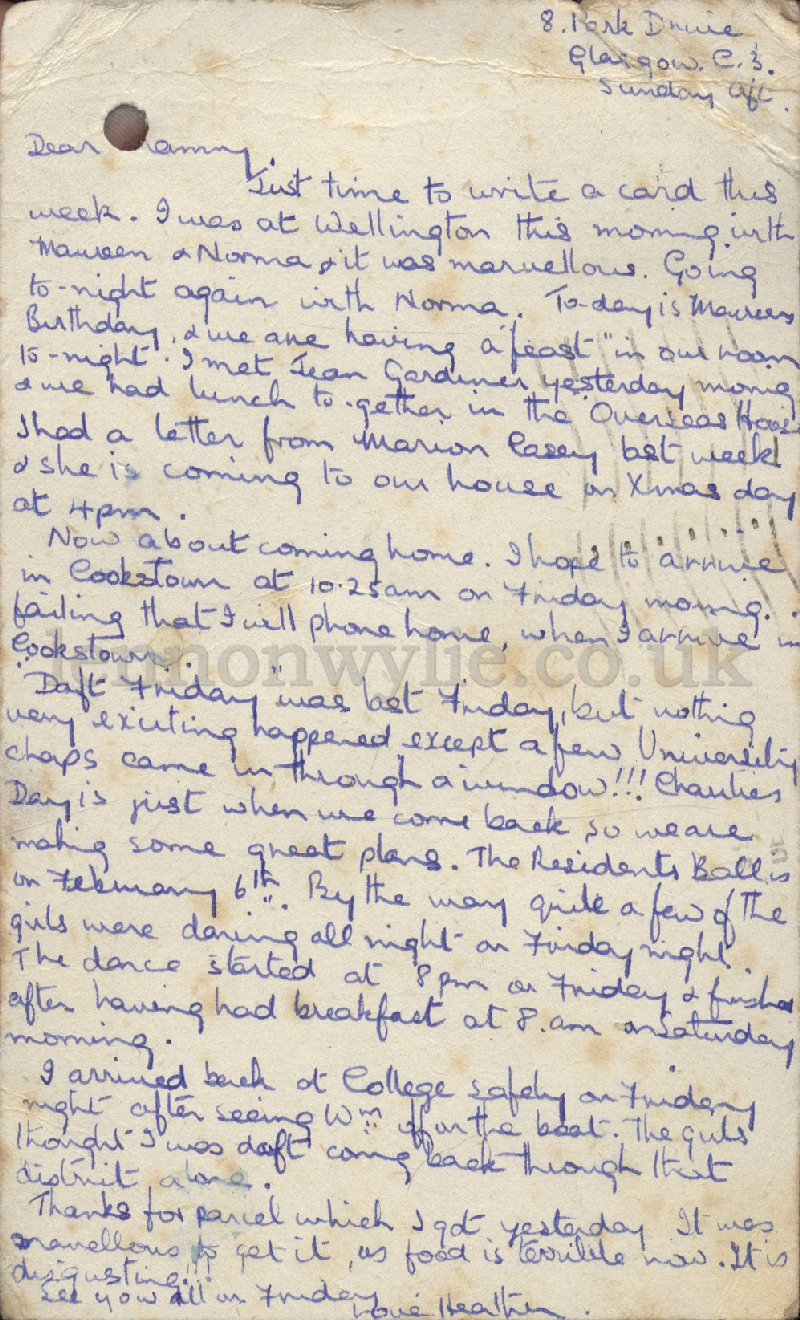 8. Park Drive
Glasgow. C.3.
Sunday Aft.
Dear Mammy.
Just time to write a card this
week. I was at Wellington this morning with
Maureen & Norma, & it was marvellous. Going
to-night again with Norma. To-day is Maureens
Birthday, & we are having a "feast" in our room
to-night. I met Jean Gardiner yesterday morning
& we had lunch to-gether in the Overseas House
I had a letter from Marion Casey last week
& she is coming to our house on Xmas day
at 4pm.
Now about coming home. I hope to arrive
in Cookstown at 10.25am on Friday morning.
failing that I will phone home, when I arrive in
Cookstown.
lennonwylie.co.uk
"Daft Friday" was last Friday, but nothing
very exciting happened except a few University
chaps came in through a window!!! Charities
Day is just when we come back so we are
making some great plans. The Residents Ball is
on February 6th. By the way quite a few of the
girls were dancing all night on Friday night.
The dance started at 8pm on Friday & finished
after having had breakfast at 8.am on Saturday
morning.
I arrived back at College safely on Friday
night after seeing Wm off on the boat. The girls
thought I was daft coming back through that
district alone.
Thanks for parcel which I got yesterday It was
marvellous to get it, as food is terrible now. It is
disgusting!!!
See you all on Friday
Love Heather.